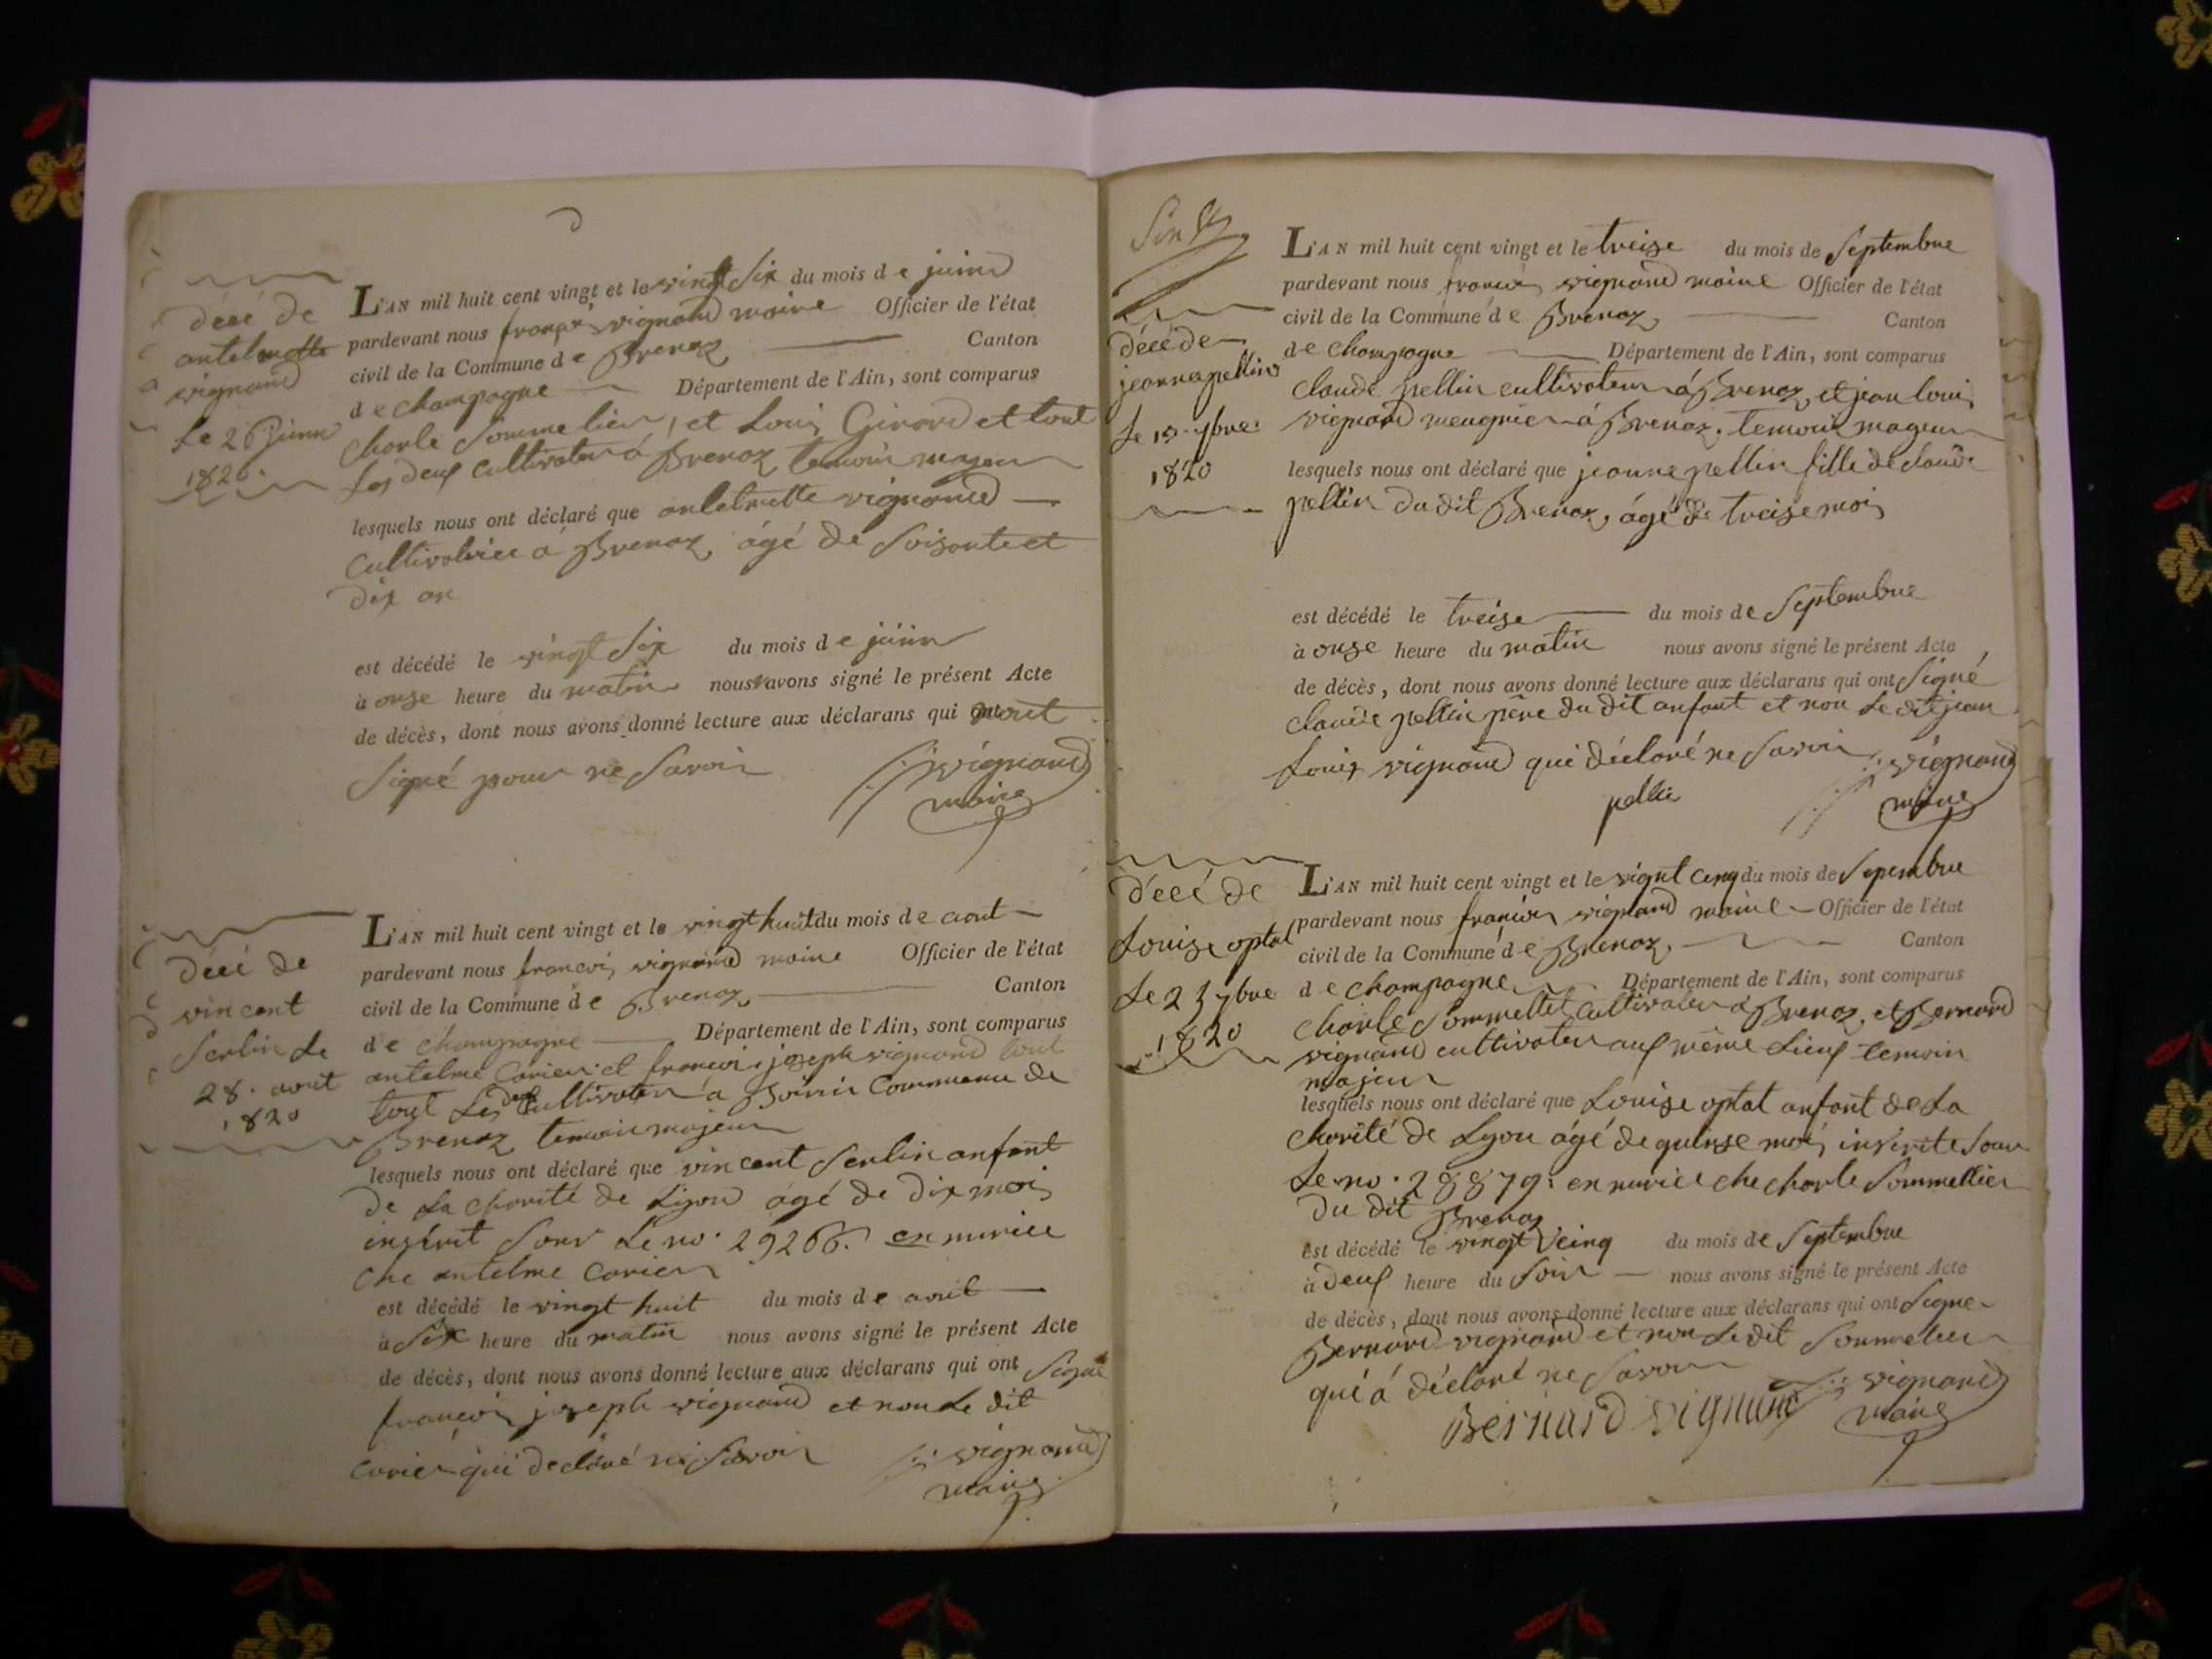 décé de
antelmette
vignand
Le 26 juin
1820.
L'AN mil huit cent vingt et le vingt six du mois de juin
pardevant nous françois vignand maire Officier de l'état
civil de la Commune de Brenaz Canton
de champagne Département de l'Ain, sont comparus
charle Sommelier, et Louis Girard et tout
Les deux cultivateur á Brenaz temoin majeur
lesquels nous ont déclaré que antelmette vignand
Cultivatrice á Brenaz, ágé de Soisante et
dix an
est décédé le vingt Six du mois de juin
à onze heure du matin nous avons signé le présent Acte
de décès, dont nous avons donné lecture aux déclarans qui ont
Signé pour ne Savoir vignand
maire
décé de
vincent
Serlin Le
28. aout
1820
L'AN mil huit cent vingt et le vingt huit du mois de aout
pardevant nous françois vignand maire Officier de l'état
civil de la Commune de Brenaz Canton
de champagne Département de l'Ain, sont comparus
antelme Carier et françois joseph vignand tout
tout Les deux Cultivateur á Commune de
Brenaz temoin majeur
lesquels nous ont déclaré que vincent Serlin anfant
de La charité de Liyon ágé de dix mois
insérit Sour Le no. 29266. en nurice
che antelme Carier
est décédé le vingt huit du mois de aout
à Six heure du matin nous avons signé le présent Acte
de décès, dont nous avons donné lecture aux déclarans qui ont Signé
françois joseph vignand et non Le dit
Carier qui declaré ne Savoir vignand
maire
décé de
jeanne pellin
Le 13. 7bre.
1820
L'AN mil huit cent vingt et le treise du mois de Septembre
pardevant nous françois vignand maire Officier de l'état
civil de la Commune de Brenaz, Canton
de champagne Département de l'Ain, sont comparus
claude pellin cultivateur á Brenaz, et jean louis
vignand meugnier á Brenaz. temoin mageur
lesquels nous ont déclaré que jeanne pellin fille de claude
pellin du dit Brenaz, ágé de treise mois
est décédé le treise du mois de Septembre
à onze heure du matin nous avons signé le présent Acte
de décès, dont nous avons donné lecture aux déclarans qui ont Signé
claude pellin père du dit anfant et non Le dit jean
Louis vignand qui déclaré ne Savoir vignand
pellin maire
décé de
Louise optal
Le 25 7bre
1820
L'AN mil huit cent vingt et le vignt cinq du mois de Sepembre
pardevant nous françois vignand maire Officier de l'état
civil de la Commune de Brenaz, Canton
de champagne Département de l'Ain, sont comparus
charle Sommellet Cultivateur á Brenaz, et Bernard
vignand cultivateur aux même Lieux temoin
majeur
lesquels nous ont déclaré que Louise optat anfant de La
charité de Lyon ágé de quinse mois inserite Sour
Le no. 28879. en nurice che charle Sommellier
du dit Brenaz
est décédé le vingt cinq du mois de Septembre
à deux heure du Soir nous avons signé le présent Acte
de décès, dont nous avons donné lecture aux déclarans qui ont Signe
Bernard vignand et non Le dit Sommelier
qui á déclaré ne Savoir vignand
Bernard vignand maire